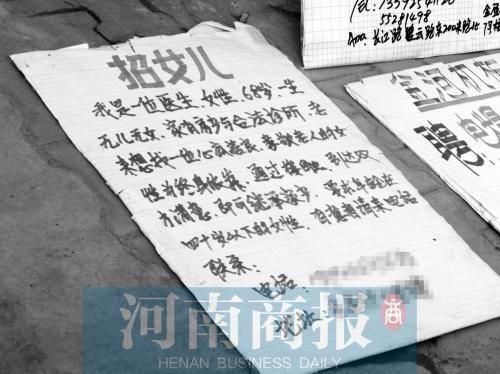 招女儿
我是一位医生、女性、68岁、一生
无儿无女、家有房产与合法诊所、老
来想找一位心底善良、孝敬老人的女
性为终身依靠、通过接触、到达双
方满意、即可继承家产、要求年龄在
四十岁以下的女性、有意者请来电话
联系：
电话：
55281498
长江路
金河机
聘
河南商报
商
HENAN BUSINESS DAILY